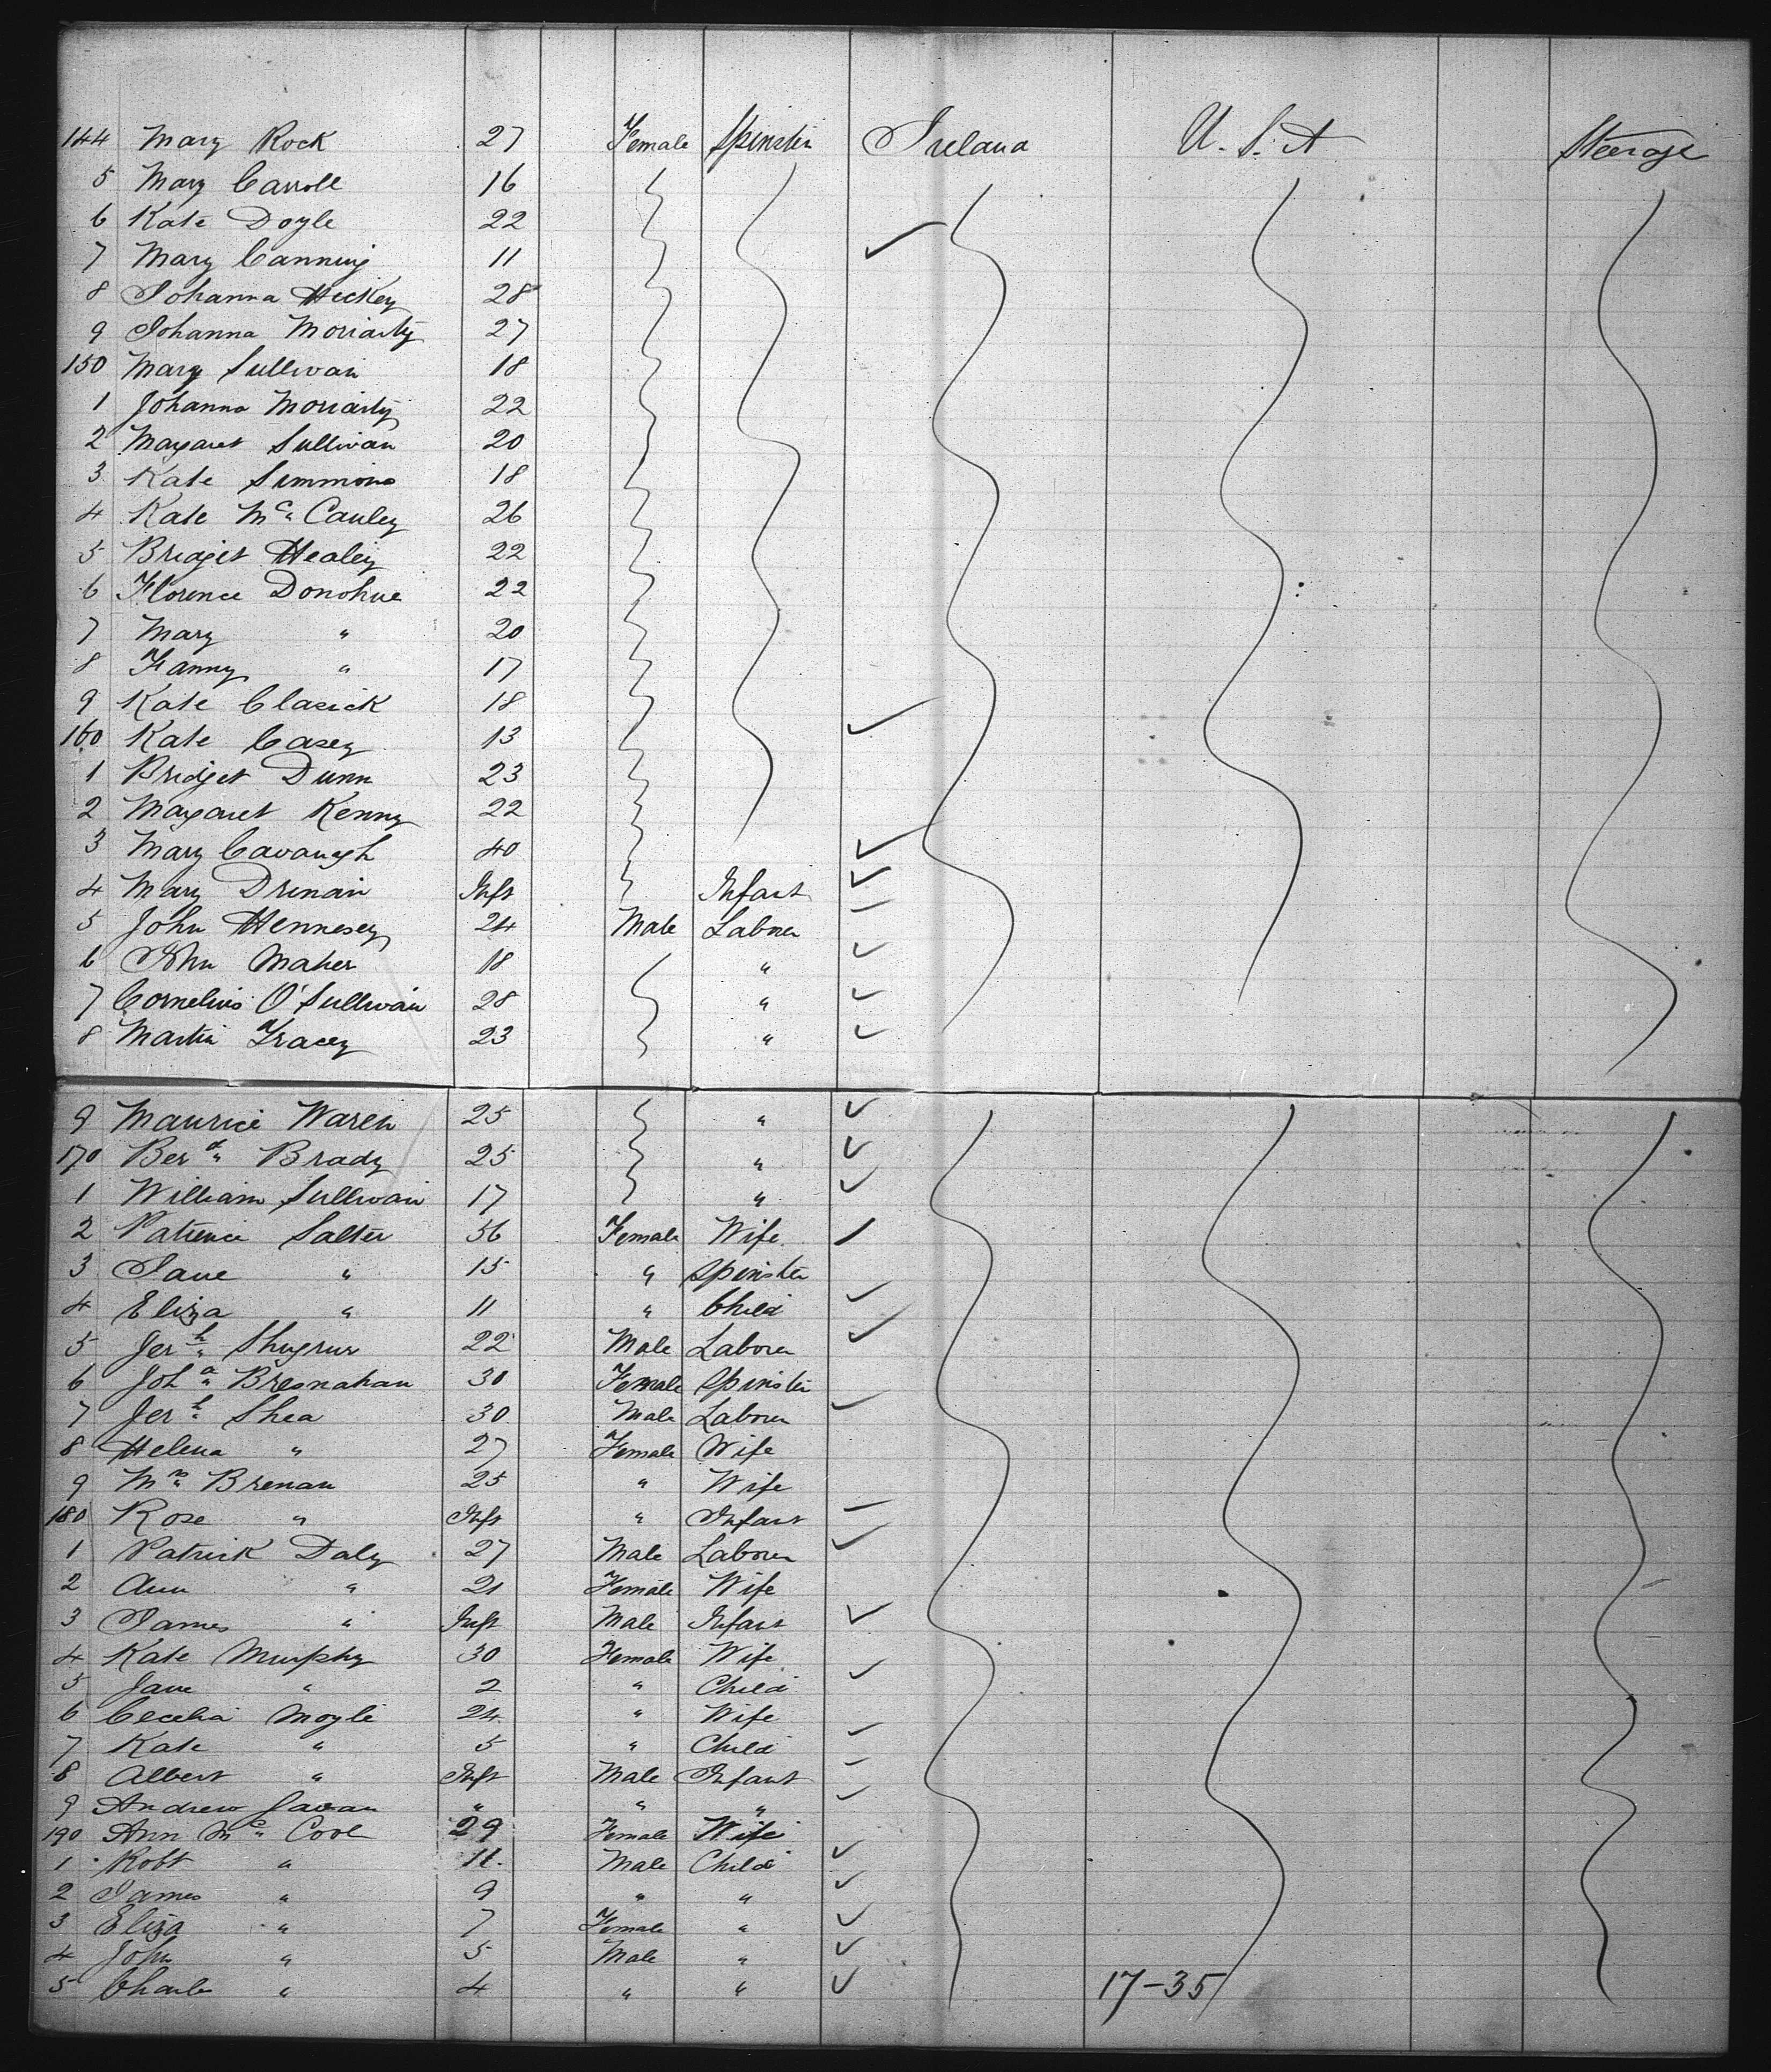 144 Mary Rock 27 Female Spinster Ireland U.S.A Steerage
5 Mary Carroll 16
6 Kate Doyle 22
7 Mary Canning 11
8 Johanna Hickey 28
9 Johanna Moriarty 27
150 Mary Sullivan 18
1 Johanna Moriarty 22
2 Margaret Sullivan 20
3 Kate Simmons 18
4 Kate Mc Cauley 26
5 Bridget Healey 22
6 Florence Donohue 22
7 Mary " 20
8 Fanny " 17
9 Kate Clasick 18
160 Kate Casey 13
1 Bridget Dunn 23
2 Margaret Kenny 22
3 Mary Cavanagh 40
4 Mary Drinan Inft Infant
5 John Hennesey 24 Male Laborer
6 John Maher 18 "
7 Cornelius O'Sullivan 28 "
8 Martin Tracey 23 "
9 Maurice Waren 25 "
170 Berd Brady 25 "
1 William Sullivan 17 "
2 Patience Salter 36 Female Wife
3 Jane " 15 " Spinster
4 Eliza " 11 " Child
5 Jerh Shugrue 22 Male Laborer
6 Joha Bresnahan 30 Female Spinster
7 Jerh Shea 30 Male Laborer
8 Helena " 27 Female Wife
9 Mrs Brenan 25 " Wife
180 Rose " Inft " Infant
1 Patrick Daly 27 Male Laborer
2 Ann " 21 Female Wife
3 James " Inft Male Infant
4 Kate Murphy 30 Female Wife
5 Jane " 2 " Child
6 Cecelia Moyle 24 " Wife
7 Kate " 5 " Child
8 Albert " Inft Male Infant
9 Andrew " " "
190 Ann Mc Cool 29 Female Wife
1 Robt " 11 Male Child
2 James " 9 " "
3 Eliza " 7 Female "
4 John " 5 Male "
5 Charles " 4 " " 17-35